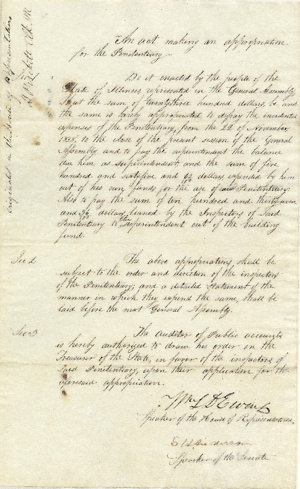 An act making an appropriation
for the Penitentiary
Be it enacted by the people of the
State of Illinois represented in the General Assembly
That the sum of twenty three hundred dollars be and
the same is hereby appropriated to defray the
expenses of the Penitentiary, from the 22 of November
to the close of the present session of the General
Assembly and to pay the superintendent the balance
due him as superintendent, and the sum of five
hundred and dollars expended by him
out of his own funds for the use of Penitentiary
Also to pay the sum of one hundred and
and dollars loaned by the Inspectors of said
Penitentiary to Superintendent out of the building
fund.
Sec 2 The above appropriations, shall be
subject to the order and direction of the inspectors
of the Penitentiary; and a detailed statement of the
manner in which they expend the same, shall be
laid before the next General Assembly.
Sec 3 The auditor of Public accounts
is hereby authorized to draw his order on the
Treasurer of the State, in favor of the inspectors of
said Penitentiary, upon their application for the
aforesaid appropriation.
Wm L D Ewing
Speaker of the House of Representatives
Speaker of the Senate
in the House of Representatives